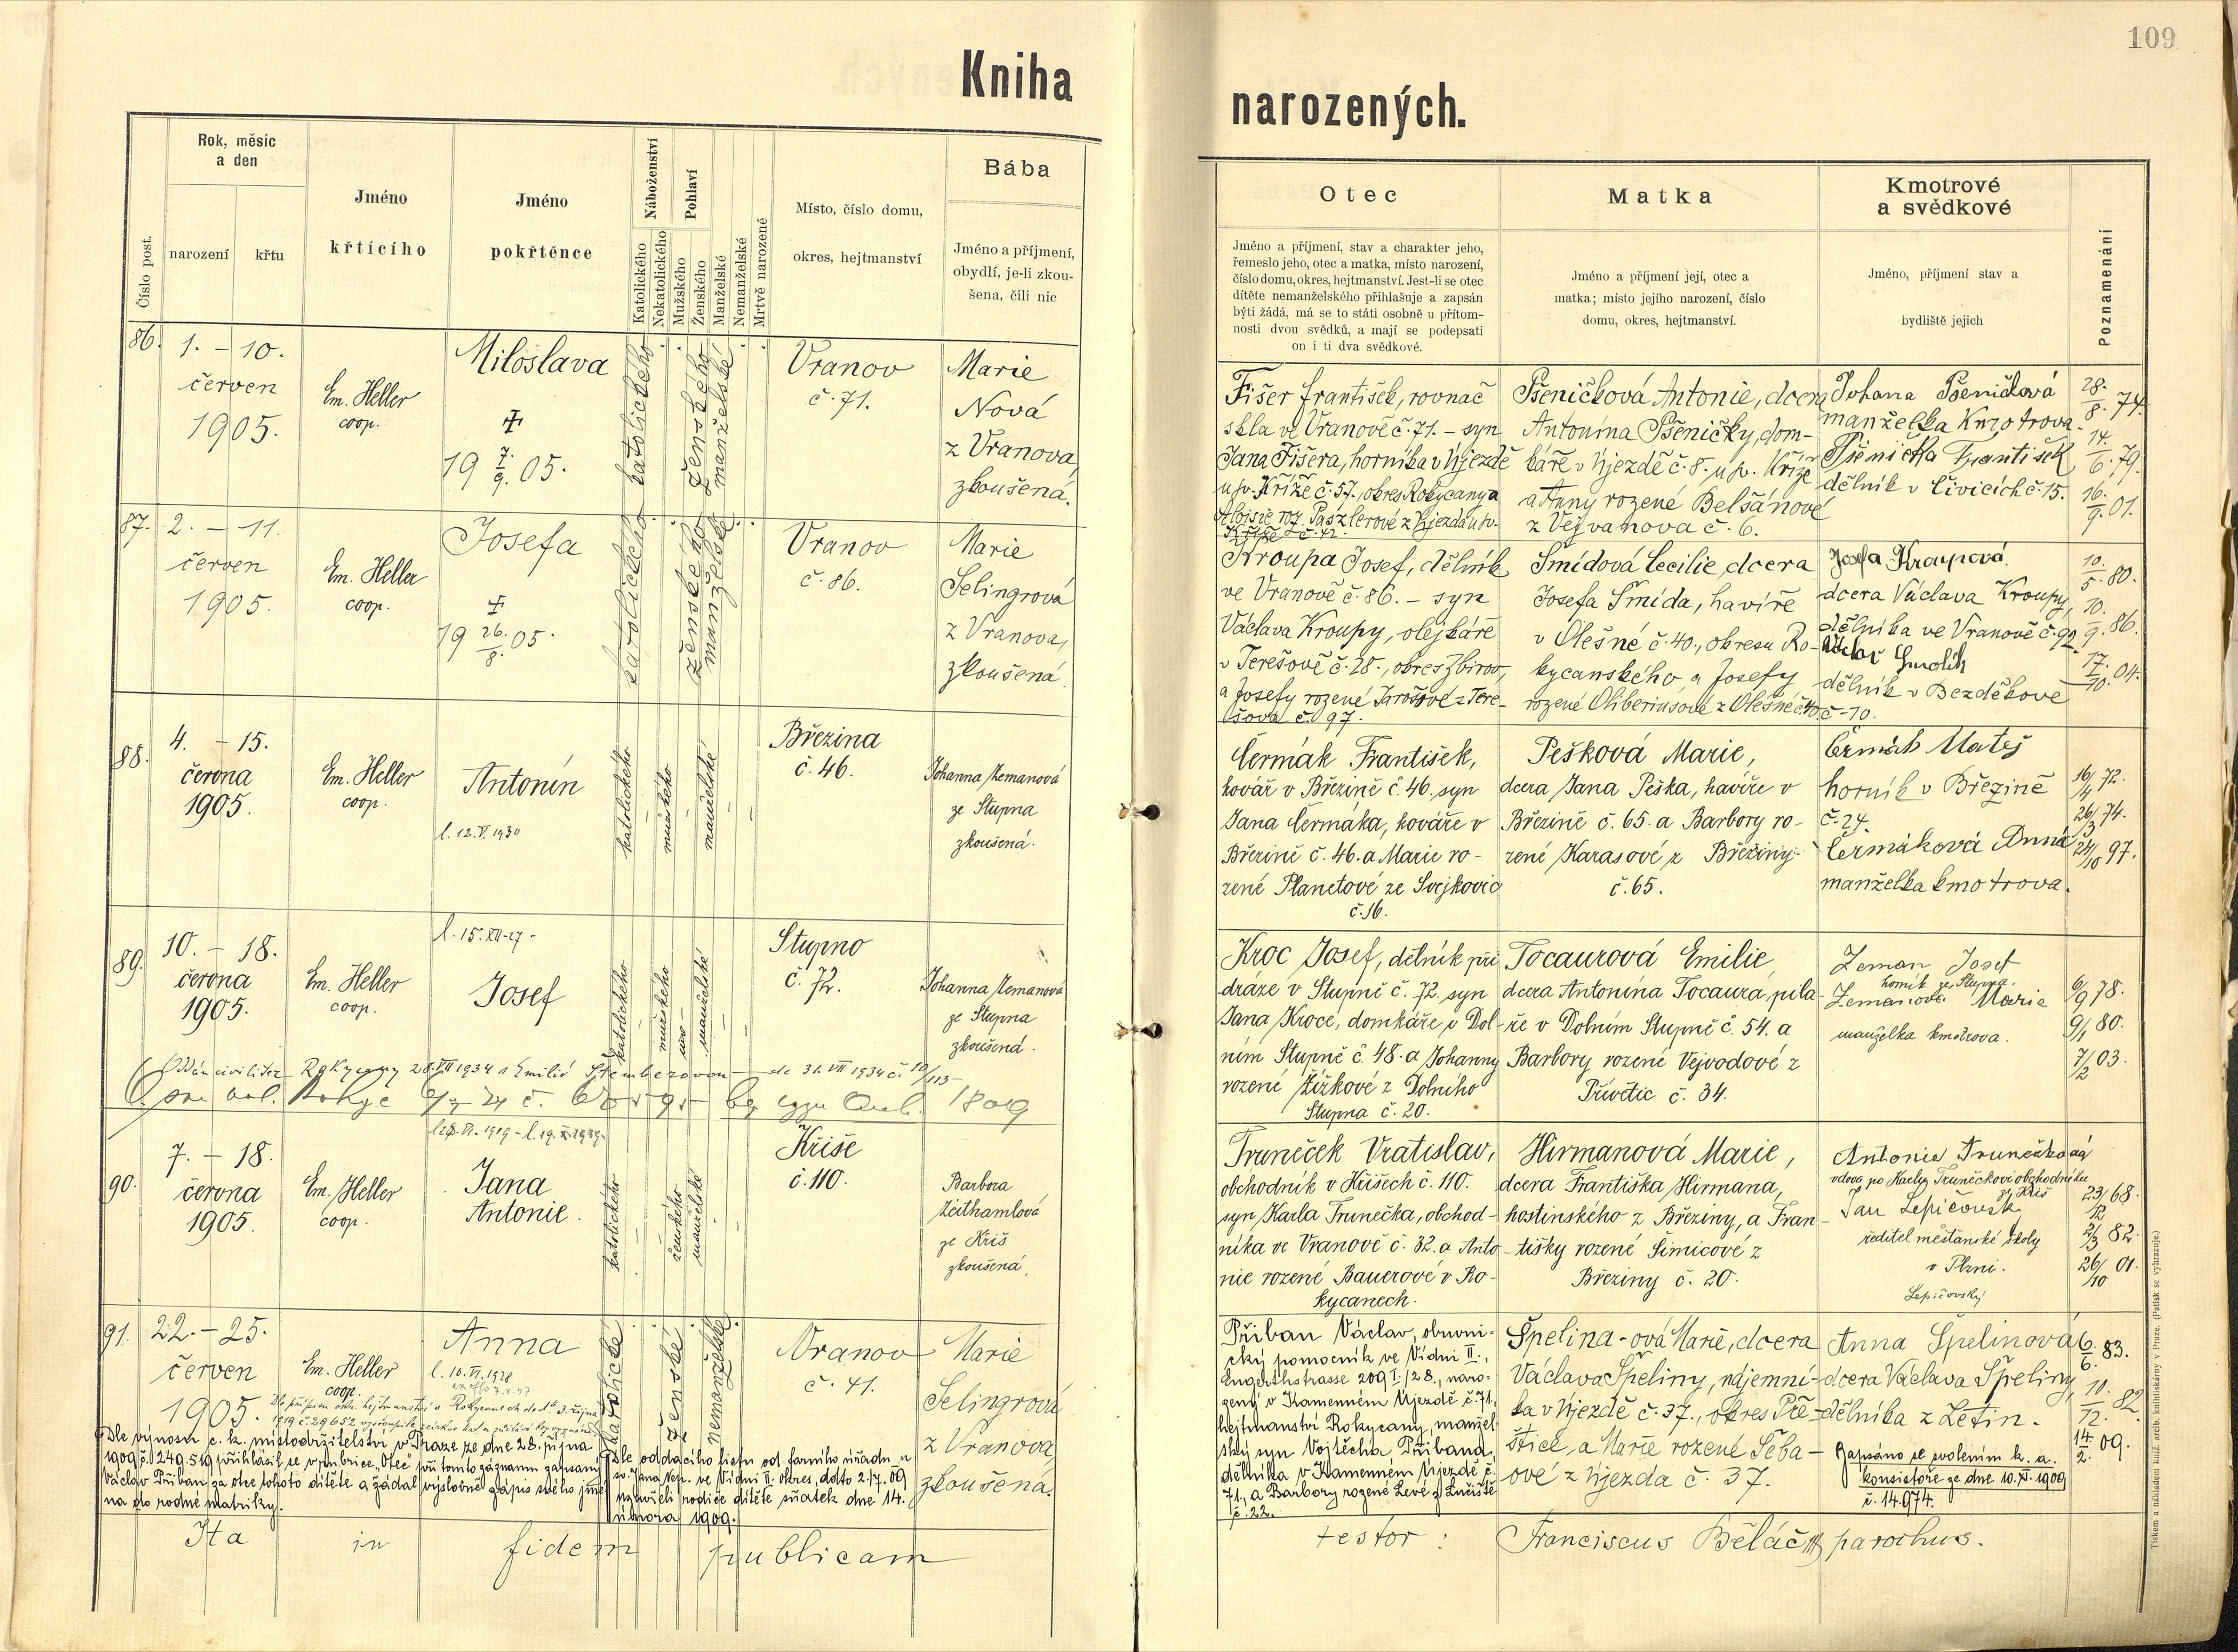 109
Kniha
narozených.
Číslo post.
Rok, měsíc
a den
narození
křtu
Jméno
křtícího
Jméno
pokřtěnce
Náboženství
Katolického
Nekatolického
Pohlaví
Mužského
Ženského
Manželské
Nemanželské
Mrtvě narozené
Místo, číslo domu,
okres, hejtmanství
Bába
Jméno a příjmení,
obydlí, je-li zkou-
šena, čili nic
Otec
Jméno a příjmení, stav a charakter jeho,
řemeslo jeho, otec a matka, místo narození,
číslo domu, okres, hejtmanství. Jest-li se otec
dítěte nemanželského přihlašuje a zapsán
býti žádá, má se to státi osobně u přítom-
nosti dvou svědků, a mají se podepsati
on i ti dva svědkové.
Matka
Jméno a příjmení její, otec a
matka; místo jejího narození, číslo
domu, okres, hejtmanství.
Kmotrové
a svědkové
Jméno, příjmení stav a
bydliště jejich
Poznamenání
86.
1. – 10.
červen
1905.
Em. Heller
coop.
Miloslava
19 7./9. 05.
katolického
ženského
manželské
Vranov
č. 71.
Marie
Nová
z Vranova,
zkoušená.
Fišer František, rovnač
skla ve Vranově č. 71. – syn
Jana Fišera, horníka v Újezdě
u sv. Kříže č. 57., okres Rokycany a
Aloisie roz. Paszlerové z Újezda u sv.
Kříže č. 42.
Pšeničková Antonie, dcera
Antonína Pšeničky, dom-
káře v Újezdě č. 8. u sv. Kříže
a Anny rozené Belšánové
z Vejvanova č. 6.
Johana Pšeničková
manželka Kmotrova.
Pšenička František
dělník v Čivicích č. 15.
28./8. 74.
14./6. 79.
16./9. 01.
87.
2. – 11.
červen
1905.
Em. Heller
coop.
Josefa
19 26./8. 05.
katolického
ženského
manželské
Vranov
č. 86.
Marie
Selingrová
z Vranova,
zkoušená.
Kroupa Josef, dělník
ve Vranově č. 86. – syn
Václava Kroupy, olejkáře
v Terešově č. 28., okres Zbirov,
a Josefy rozené Jarošové z Tere-
šova č. 97.
Šmídová Cecilie, dcera
Josefa Šmída, havíře
v Olešné č. 40., okresu Ro-
kycanského a Josefy
rozené Oliberiusové z Olešné č. 40.
Josefa Kroupová
dcera Václava Kroupy,
dělníka ve Vranově č. 92.
Václav Smolík
dělník v Bezděkově
č. 10.
10./5. 80.
10./9. 86.
17./10. 04.
88.
4. – 15.
června
1905.
Em. Heller
coop.
Antonín
l. 12. V. 1930
katolického
mužského
manželské
Březina
č. 46.
Johanna Zemanová
ze Stupna
zkoušená.
Čermák František,
kovář v Březině č. 46. syn
Jana Čermáka, kováře v
Březině č. 46. a Marie ro-
zené Planetové ze Svejkovic
č. 16.
Pešková Marie,
dcera Jana Peška, havíře v
Březině č. 65. a Barbory ro-
zené Karasové z Březiny
č. 65.
Čermák Matěj
horník v Březině
č. 24.
Čermáková Anna
manželka kmotrova.
16/4 72.
26/3 74.
24/10 97.
89.
10. – 18.
června
1905.
Em. Heller
coop.
l. 15. XII-27-
Josef
katolického
mužského
manželské
Stupno
č. 72.
Johanna Zemanová
ze Stupna
zkoušená.
Rokycany 28. VII 1934 s Emilií Štemberovou
Kroc Josef, dělník při
dráze v Stupně č. 72. syn
Jana Kroce, domkáře v Dol-
ním Stupně č. 48. a Johanny
rozené Žížkové z Dolního
Stupna č. 20.
Tocaurová Emilie
dcera Antonína Tocaura, pila-
ře v Dolním Stupně č. 54. a
Barbory rozené Vejvodové z
Přívětic č. 34.
Zeman Josef
horník ze Stupna.
Zemanová Marie
manželka kmotrova.
6/9 78.
9/1 80.
7/2 03.
90.
7. – 18.
června
1905.
Em. Heller
coop.
Jana
Antonie.
katolického
ženského
manželské
Kříše
č. 110.
Barbora
Žeithamlová
ze Kříš
zkoušená.
Truneček Vratislav,
obchodník v Křišech č. 110.
syn Karla Trunečka, obchod-
níka ve Vranově č. 32. a Anto-
nie rozené Bauerové v Ro-
kycanech.
Hirmanová Marie,
dcera Františka Hirmana,
hostinského z Březiny, a Fran-
tišky rozené Šimicové z
Březiny č. 20.
Antonie Trunečková
vdova po Karlu Trunečkovi obchodníku
ze Kříš
Jan Lepičovský
ředitel měšťanské školy
v Plzni.
Lepičovský
23/12 68.
2/3 82.
26/10 01.
91.
22. – 25.
červen
1905.
Em. Heller
coop.
Anna
l. 10. VI. 1928
katolické
ženské
nemanželské
Vranov
č. 41.
Marie
Selingrová
z Vranova,
zkoušená.
Dle výnosu c. k. místodržitelství v Praze ze dne 28. října
1909 č. 249.519 přihlásil se v rubrice „Otec“ při tomto záznamu zapsaný
Václav Přiban za otce tohoto dítěte a žádal výslovně zápis svého jmé-
na do rodné matriky.
Dle oddacího listu od farního úřadu u
sv. Jana Nep. ve Vídni II. okres, ddto 2./7. 09
uzavřeli rodiče dítěte sňatek dne 14.
února 1909.
Přiban Václav, obuvni-
cký pomocník ve Vídni II.,
Engerthstrasse 209 I./28., naro-
zený v Kamenném Újezdě č. 71.,
hejtmanství Rokycany, manžel-
ský syn Vojtěcha Přibana,
dělníka v Kamenném Újezdě č.
71., a Barbory rozené Levé z Lučiště
č. 22.
Špelina-ová Marie, dcera
Václava Špeliny, nájemní-
ka v Újezdě č. 37., okres Pře-
štice, a Marie rozené Šeba-
ové z Újezda č. 37.
Anna Špelinová
dcera Václava Špeliny,
dělníka z Letin.
Zapsáno se svolením k. a.
konsistoře ze dne 10. XI. 1909
č. 14.974.
6./6. 83.
10./12. 82.
14./2. 09.
Ita in fidem publicam
testor : Franciscus Běláč parochus.
Tiskem a nákladem kníž. arcib. knihtiskárny v Praze. (Patisk se vyhrazuje.)